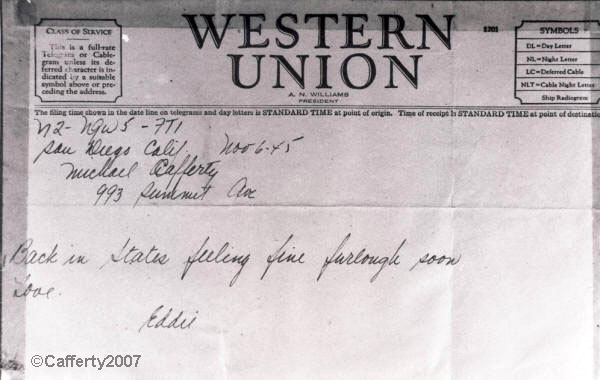 CLASS OF SERVICE
This is a full-rate
Telegram or Cable-
gram unless its de-
ferred character is in-
dicated by a suitable
symbol above or pre-
ceding the address.
WESTERN
UNION
A. N. WILLIAMS
PRESIDENT
1201
SYMBOLS
DL=Day Letter
NL=Night Letter
LC=Deferred Cable
NLT=Cable Night Letter
Ship Radiogram
The filing time shown in the date line on telegrams and day letters is STANDARD TIME at point of origin. Time of receipt is STANDARD TIME at point of destinatio
N2- NGW5 - 771
San Diego Calif. Nov 6-45
Michael Cafferty
993 Summit Ave
Back in States feeling fine furlough soon
Love.
Eddie
©Cafferty2007